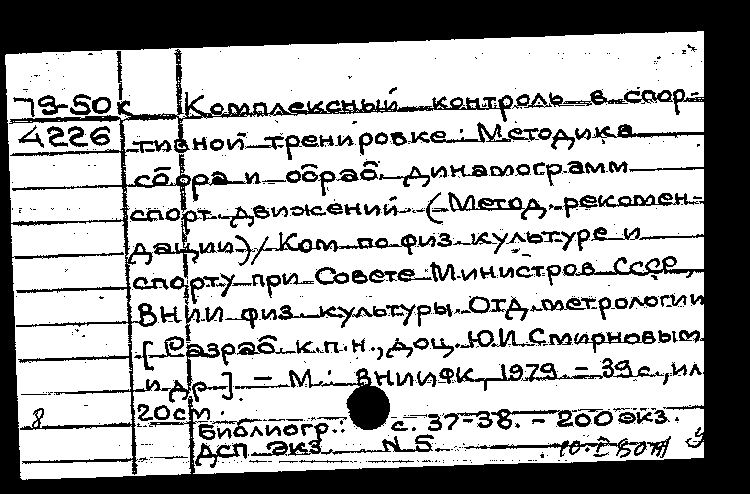 79-50к Комплексный контроль в спор-
4226 тивной тренировке: Методика
сбора и обраб. динамограмм
спорт. движений. (Метод. рекомен-
дации) / Ком. по физ. культуре и
спорту при Совете Министров СССР,
ВНИИ физ. культуры. Отд. метрологии
[Разраб. к.п.н., доц. Ю.И. Смирновым
и др.]. - М.: ВНИИФК, 1979. - 39 с., ил
8 20 см.
Библиогр.: с. 37-38. - 200 экз.
ДСП. Экз. N 5